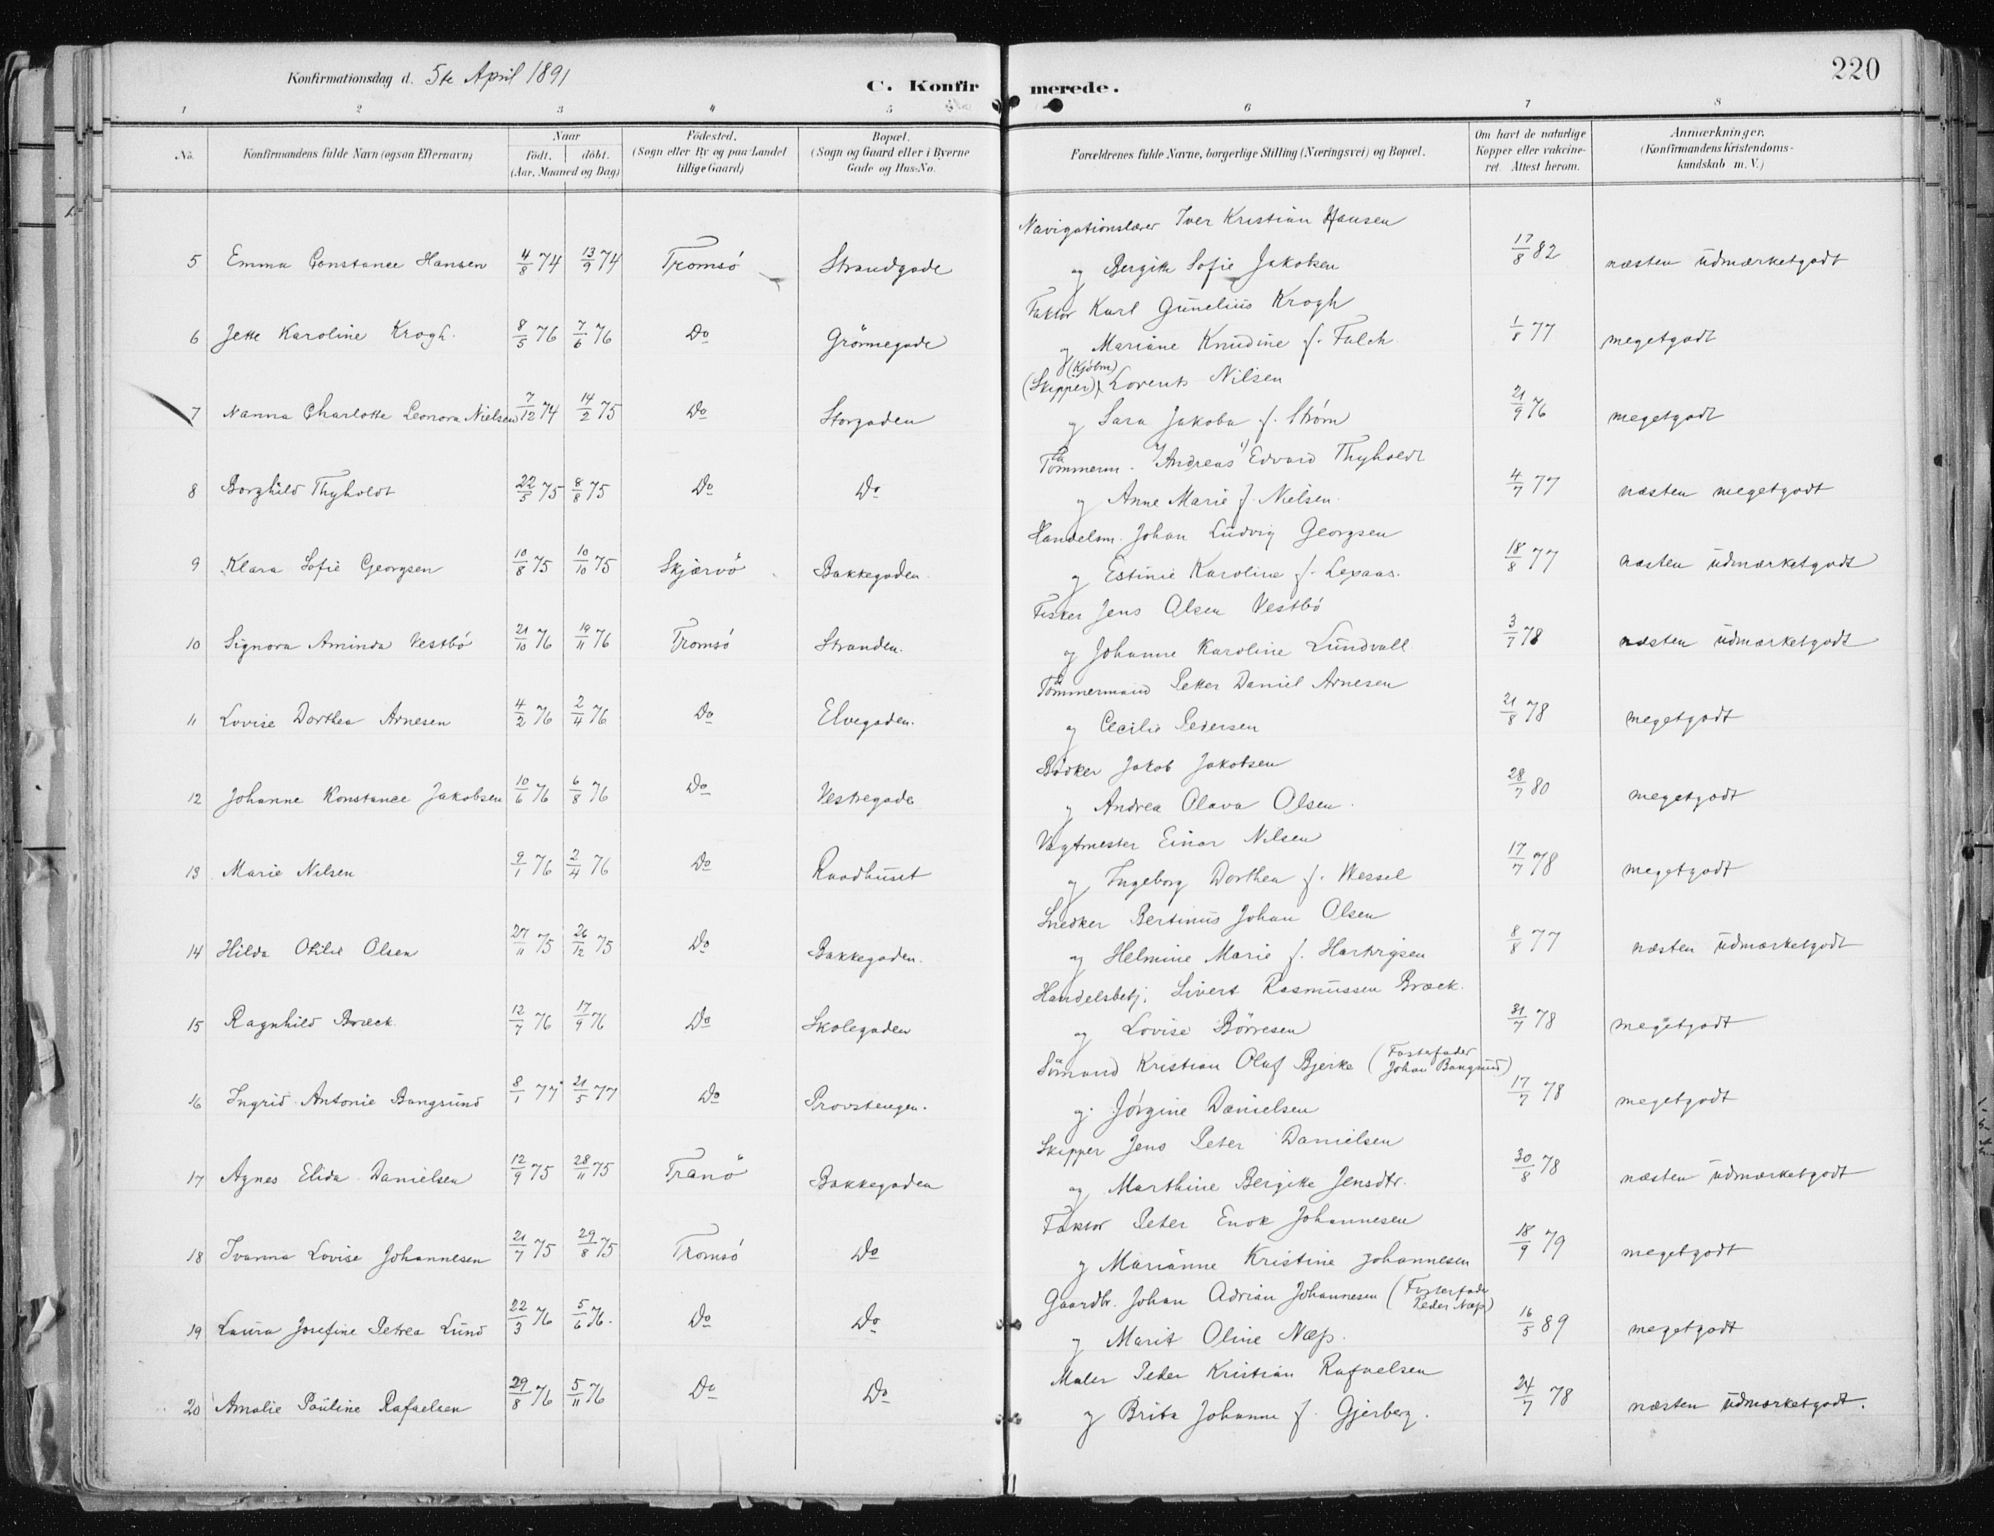 220
Konfirmationsdag d. 5te April 1891
C. Konfirmerede.
1 2 3 4 5 6 7 8
No. Konfirmandens fulde Navn (ogsaa Efternavn) Naar födt. döbt. (Aar, Maaned og Dag) Födested. (Sogn eller By og paa Landet tillige Gaard) Bopæl. (Sogn og Gaard eller i Byerne Gade og Hus-No. Forældrenes fulde Navne, borgerlige Stilling (Næringsvei) og Bopæl. Om havt de naturlige Kopper eller vakcineret. Attest herom. Anmærkninger. (Konfirmandens Kristendomskundskab m. V.)
Navigationslærer Iver Kristian Hansen
5 Emma Constance Hansen 4/8 74 13/9 74 Tromsö Strandgade og Bergitte Sofie Jakobsen 17/8 82 næsten udmærketgodt
Faktor Karl Gunelius Krogh
6 Jette Karoline Krogh. 8/5 76 7/6 76 Do Grönnegade og Mariane Knudine f. Falch 1/8 77 megetgodt
(Skipper) (Kjøbm) Lorents Nilsen
7 Nanna Charlotte Leonora Nielsen 7/12 74 14/2 75 Do Storgaden og Sara Jakoba f. Strøm 21/9 76 megetgodt
Tömmerm. Andreas Edvard Thyholdt
8 Borghild Thyholdt 22/5 75 8/8 75 Do Do og Anne Marie f. Nielsen. 4/7 77 næsten megetgodt
Handelsm. Johan Ludvig Georgsen
9 Klara Sofie Georgsen 10/8 75 10/10 75 Skjærvö Bakkegaden. og Estinie Karoline f. Lexaas. 18/8 77 næsten udmærketgodt
Fisker Jens Olsen Vestbö
10 Signora Aminda Vestbö 21/10 76 19/11 76 Tromsö Stranden. og Johanne Karoline Lundvall 3/7 78 næsten udmærketgodt
Tömmermand Petter Daniel Arnesen
11 Lovise Dorthea Arnesen 4/2 76 2/4 76 Do Elvegaden. og Cecilie Pedersen 21/8 78 megetgodt
Bödker Jakob Jakobsen
12 Johanne Konstance Jakobsen 10/6 76 6/8 76 Do Vestregade og Andrea Olava Olsen. 28/7 80 megetgodt
Vagtmester Einar Nilsen
13 Marie Nilsen 9/1 76 2/4 76 Do Raadhuset og Ingeborg Dorthea f. Wessel 17/7 78 megetgodt
Snedker Bertinus Johan Olsen
14 Hilda Otilie Olsen 27/11 75 26/12 75 Do Bakkegaden. og Helmine Marie f. Hartvigsen 8/8 77 næsten udmærketgodt
Handelsbetj. Sivert Rasmussen Bræck.
15 Ragnhild Bræck 12/7 76 17/9 76 Do Skolegaden og Lovise Börresen 31/7 78 megetgodt
Sömand Kristian Olaf Bjerke (Fosterfader Johan Bangsund)
16 Ingrid Antonie Bangsund 8/1 77 21/5 77 Do Provstengen. og Jörgine Danielsen 17/7 78 megetgodt
Skipper Jens Peter Danielsen
17 Agnes Elida Danielsen 12/9 75 28/11 75 Tranö Bakkegaden og Marthine Bergitte Jensdtr. 30/8 78 næsten udmærketgodt
Faktor Peter Enok Johannesen
18 Ivanna Lovise Johannesen 21/7 75 29/8 75 Tromsö Do og Marianne Kristine Johannesen 18/9 79 megetgodt
Gaardbr. Johan Adrian Johannesen (Fosterfader Peder Næss)
19 Laura Josefine Petrea Lund 22/3 76 5/6 76. Do Do og Marit Oline Næss. 16/5 89 megetgodt
Maler Peder Kristian Rafaelsen
20 Amalie Pauline Rafaelsen 29/8 76 5/11 76 Do Do og Brita Johanne f. Gjerberg. 24/7 78 næsten udmærketgodt.